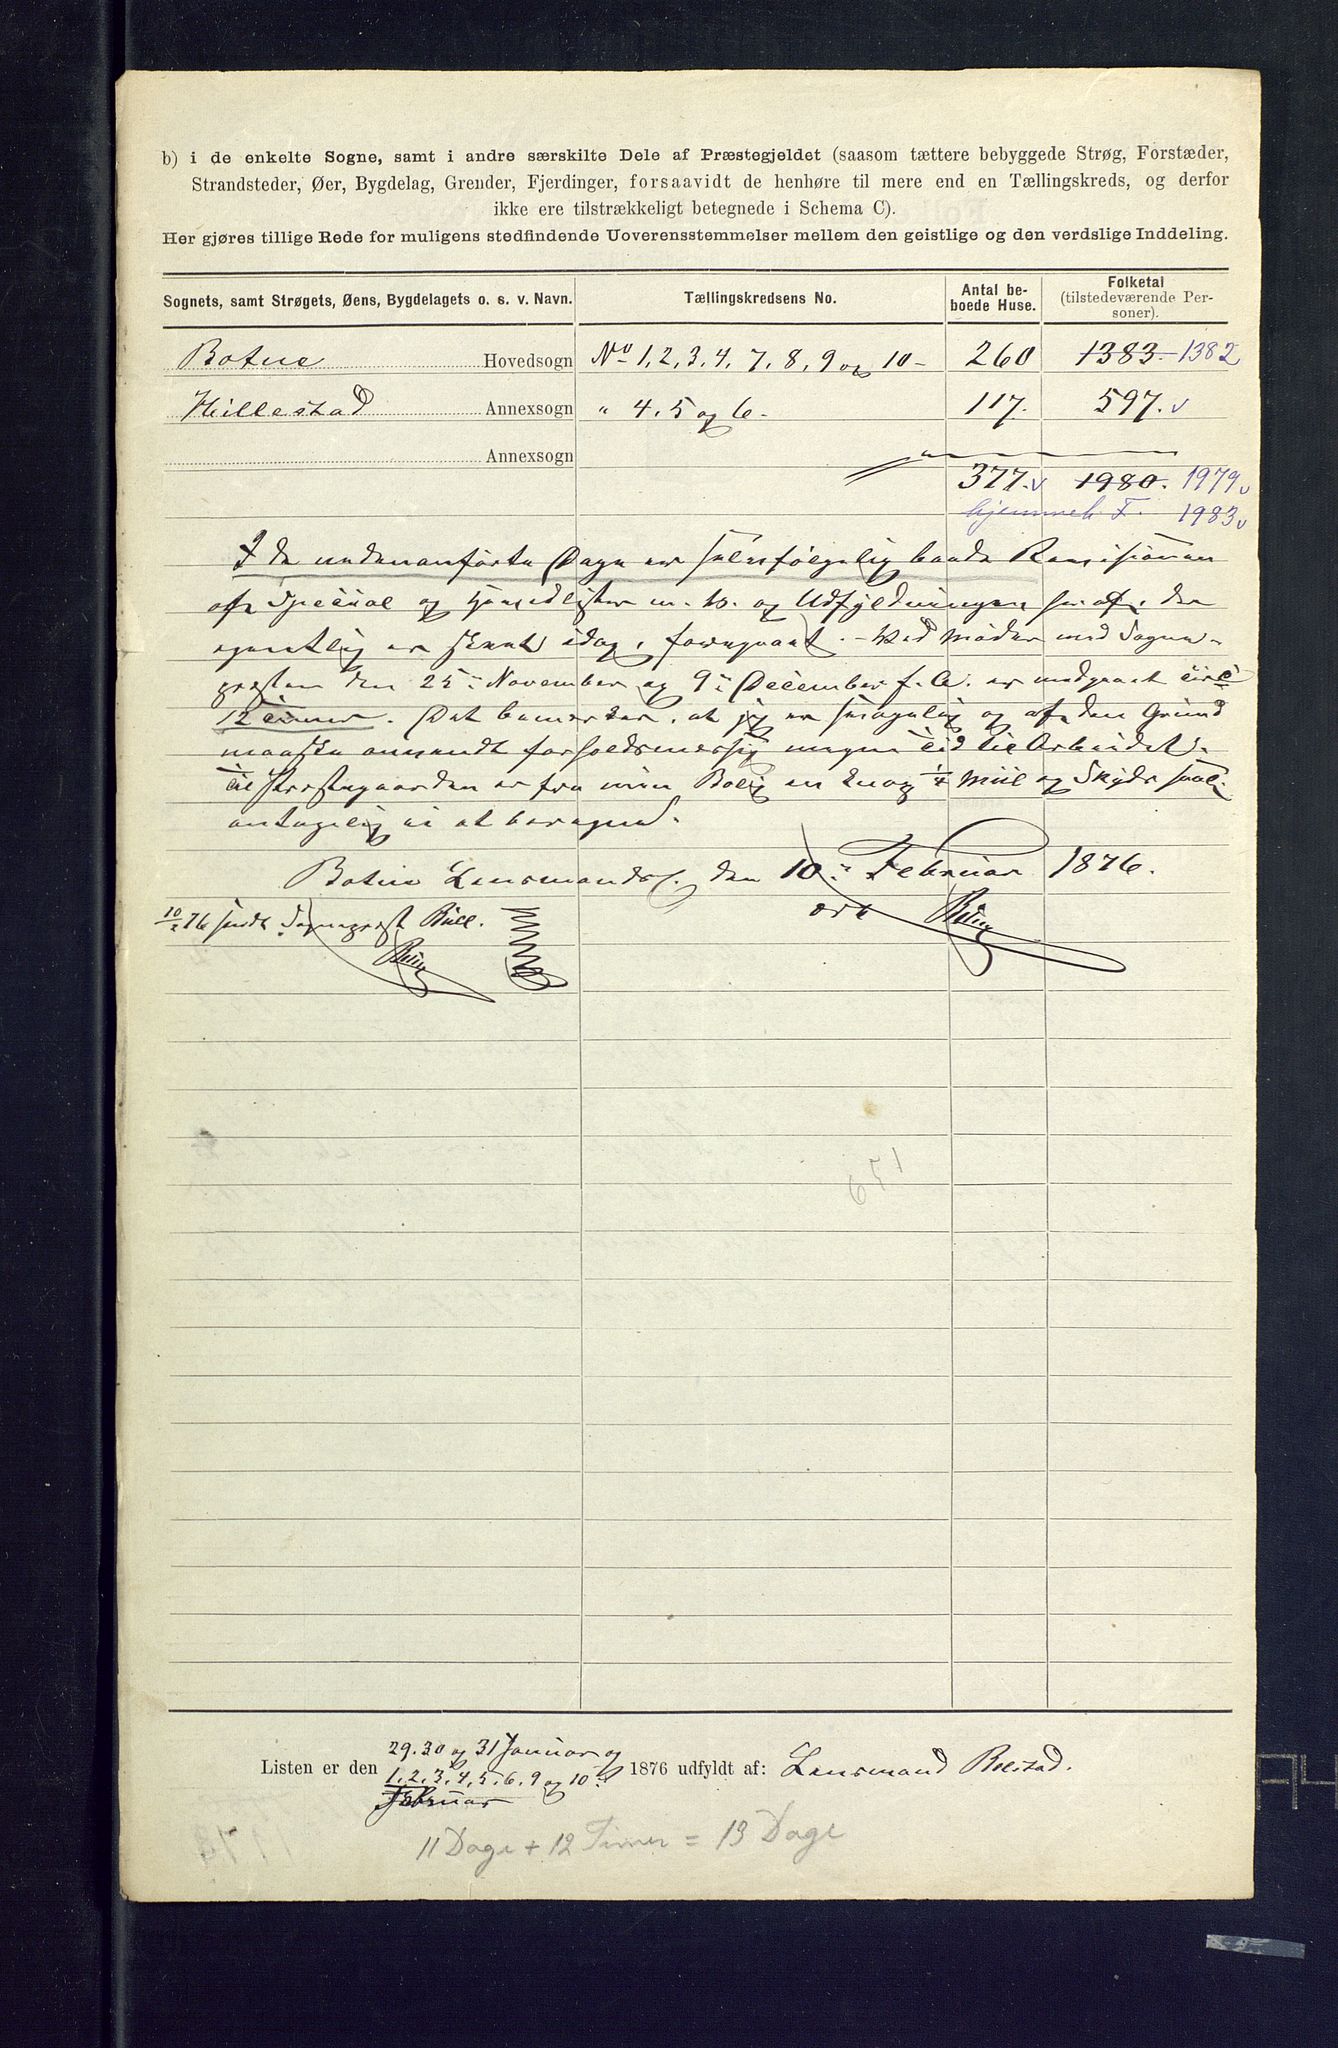 b) i de enkelte Sogne, samt i andre særskilte Dele af Præstegjeldet (saasom tættere bebyggede Strøg, Forstæder,
Strandsteder, Øer, Bygdelag, Grender, Fjerdinger, forsaavidt de henhøre til mere end en Tællingskreds, og derfor
ikke ere tilstrækkeligt betegnede i Schema C).
Her gjøres tillige Rede for muligens stedfindende Uoverensstemmelser mellem den geistlige og den verdslige Inddeling.
Sognets, samt Strøgets, Øens, Bygdelagets o. s. v. Navn. Tællingskredsens No. Antal beboede Huse. Folketal (tilstedeværende Personer).
Botne Hovedsogn No 1, 2, 3, 4, 7, 8, 9 og 10 - 260 1383 - 1382
Hillestad Annexsogn " 4, 5 og 6 - 117. 597. v
Annexsogn
377. v 1980. 1979 v
hjemmeh. F. 1983 v
I de undenanførte Dage er selvfølgelig baade Revisionen
af Special og Hovedlister m. v. og Udfyldningen heraf, der
egentlig er skeet idag, foregaaet. - Ved Møder med Sogne-
præsten den 25 November og 9 December f. A. er medgaaet circa
12 Timer. Det bemærkes, at jeg er og af den Grund
maaske anvendt forholdsmessig megen Tid til Arbeidet.
Til Præstegaarden er fra min Bolig en knap 1/4 Miil og Skyds saal.
antagelig ei at beregne.
Botne Lensmandsf. den 10 Februar 1876.
10/2 76 sendt Sogneprest Bull.
651
Listen er den 29. 30 og 31 Januar og
1, 2, 3, 4, 5, 6, 9 og 10 1876 udfyldt af: Lensmand Bolstad.
Februar
11 Dage + 12 Timer = 13 Dage